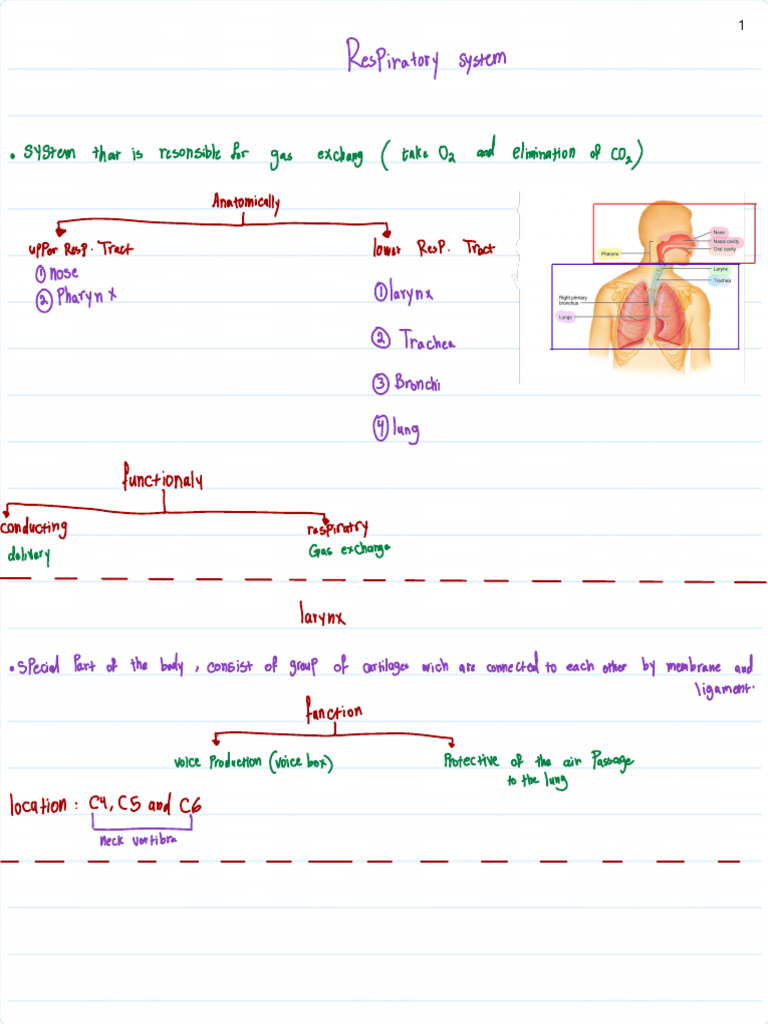 1
Respiratory system
• system that is resonsible for gas exchang ( take O2 and elimination of CO2)
Anatomically
upper Resp. Tract
① nose
② Pharynx
lower Resp. Tract
① larynx
② Trachea
③ Bronchi
④ lung
Nose
Nasal cavity
Oral cavity
Pharynx
Larynx
Trachea
Right primary
bronchus
Lungs
functionaly
conducting
delivery
respiratry
Gas exchange
larynx
• special Part of the body, consist of group of cartilages wich are connected to each other by membrane and
ligament.
function
voice Production (voice box)
Protective of the air Passage
to the lung
location: C4, C5 and C6
neck vortibra